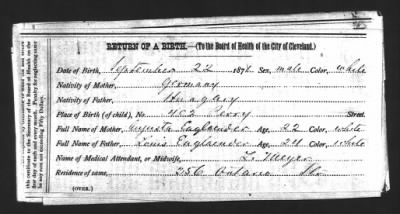 RETURN OF A BIRTH.—(To the Board of Health of the City of Cleveland.)
Date of Birth, September 22 187 Sex, male Color, white
Nativity of Mother, Germany
Nativity of Father, Hungary
Place of Birth (of child), No. 452 Perry Street
Full Name of Mother, Augusta Englaender Age, 22 Color, white
Full Name of Father, Louis Englaender Age, 24 Color, white
Name of Medical Attendant, or Midwife, L. Meyer
Residence of same, 256 Ontario Str.
(OVER.)